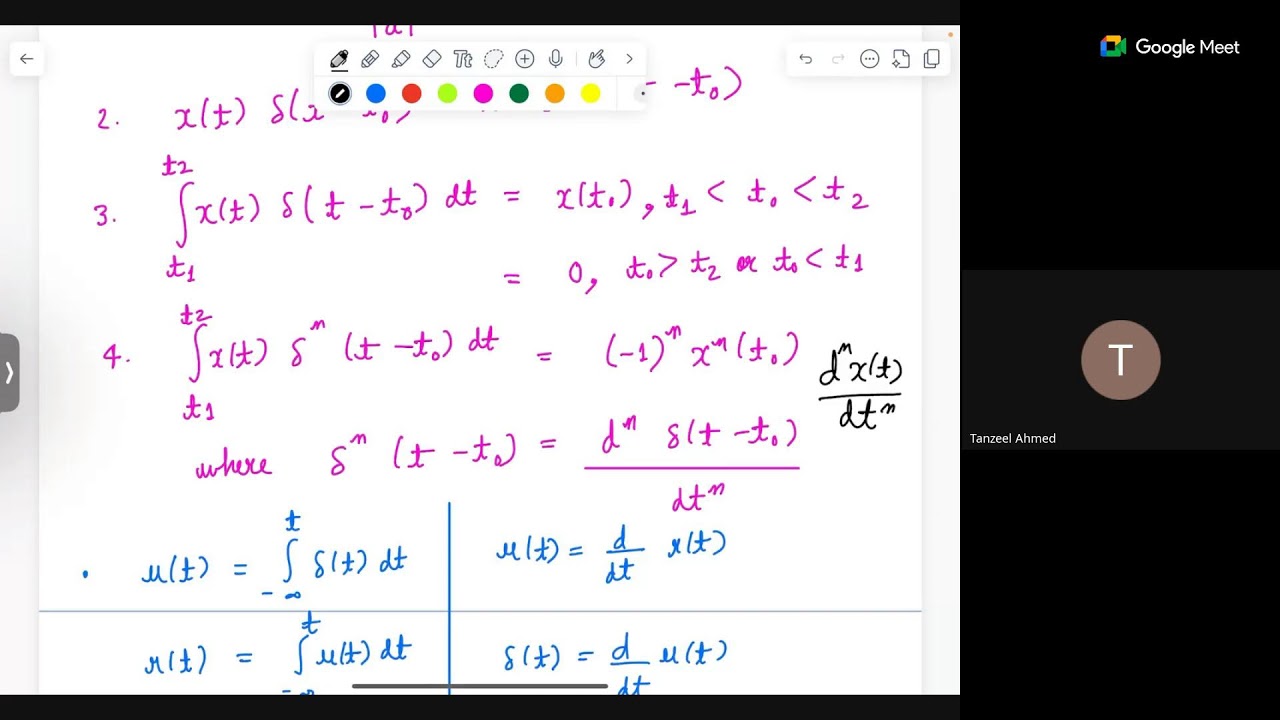 |a|
Google Meet
2. x(t) δ(x - t₀) - t₀)
t2
3. ∫x(t) δ(t - t₀) dt = x(t₀), t₁ < t₀ < t₂
t1
= 0, t₀ > t₂ or t₀ < t₁
t2
4. ∫x(t) δⁿ (t - t₀) dt = (-1)ⁿ xⁿ(t₀) dⁿx(t)
t1 dtⁿ
where δⁿ (t - t₀) = dⁿ δ(t - t₀)
dtⁿ
t
• u(t) = ∫ δ(t) dt
- ∞
u(t) = d r(t)
dt
t
r(t) = ∫ u(t) dt
-∞
δ(t) = d u(t)
dt
Tt
T
Tanzeel Ahmed